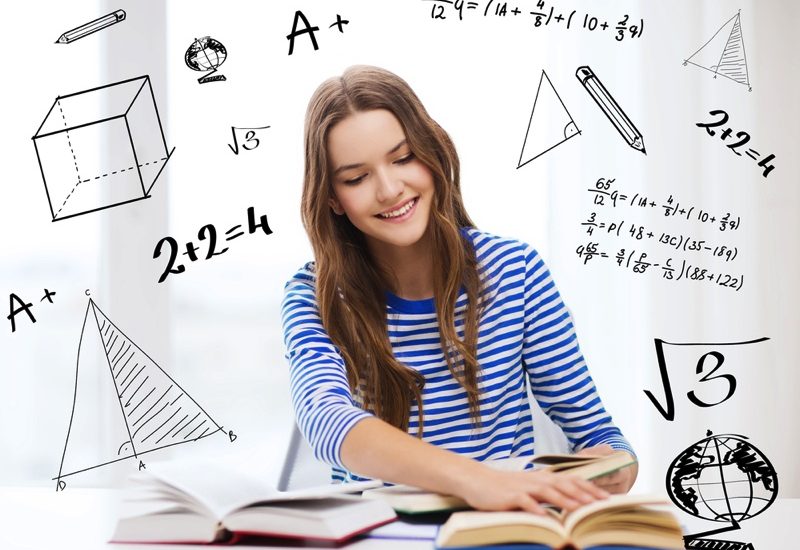 A+
12 9=(1A+ 4/8)+(10+ 2/3 9)
√3
2+2=4
65/12 9=(1A+ 4/8)+(10+ 2/3 9)
3/4=P(48+13C)(35-189)
9 65/P= 3/4(P/65 - C/13)(88+122)
2+2=4
A+
C
B
A
D
√3